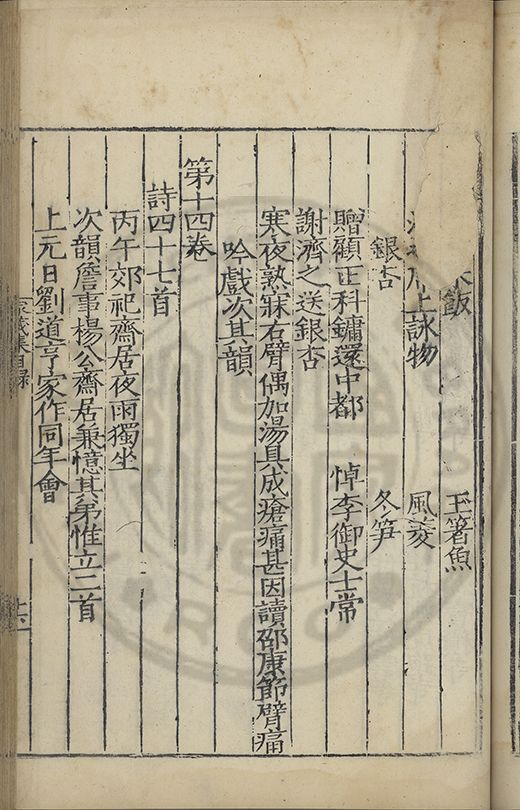 飯 玉箸魚
上詠物 風菱
銀杏 冬笋
贈顧正科鏞還中都 悼李御史士常
謝濟之送銀杏
寒夜熟寐右臂偶加湯具成瘡痛甚因讀邵康節臂痛
吟戲次其韻
第十四卷
詩四十七首
丙午郊祀齋居夜雨獨坐
次韻詹事楊公齋居兼憶其弟惟立二首
上元日劉道亨家作同年會
集目録